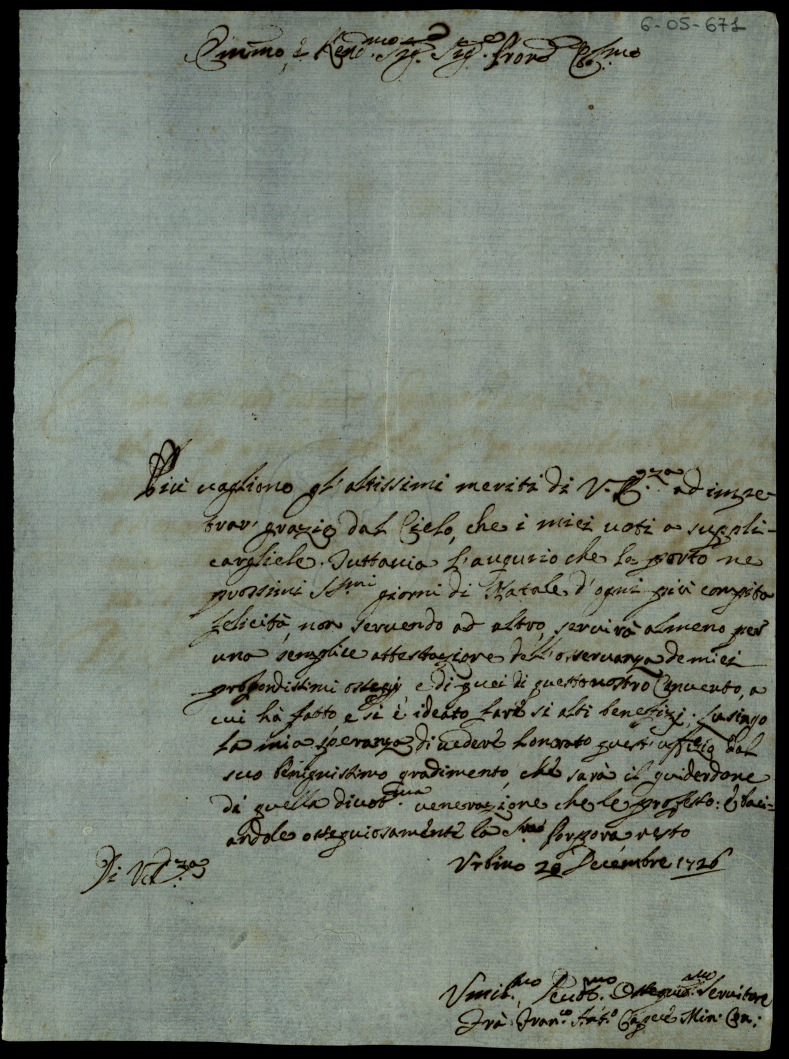 6-05-671
Emmo, e Rend.mo Sig.r Sig.r Pron̄e Col.mo
Più vagliono gl'altissimi meriti di V. E.nza ad impe-
trar' grazie dal Cielo, che i miei voti a suppli-
cargliele. Tuttavia l'augurio che le porto ne
prossimi SS.mi giorni di Natale d'ogni più compita
felicità, non servendo ad altro, servirà almeno per
una semplice attestazione dell'osservanza de miei
profondissimi ossequj e di quei di questo nostro Convento, a
cui hà fatto, e si è ideato fare si alti benefizj; Lusingo
la mia speranza di vedere honorato quest'uffizio dal
suo Benignissimo gradimento, che sarà il guiderdone
di quella divot.ma venerazione che le professo: e baci-
andole ossequiosamente la Porpora resto
Urbino 20 Decembre 1726
Di V. E.nza
Umil.mo Devot.mo Ossequio.mo Servitore
Frà Fran.co Ant.o Min. Con.